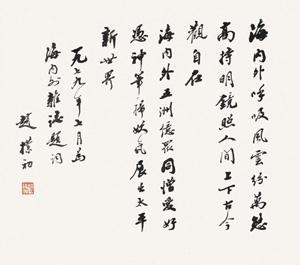 海内外呼吸風雲紛萬態
高持明鏡照人間上下古今
觀自在
海内外五洲億眾同憎愛好
憑神筆掃妖氛展出太平
新世界
一九七九年七月為
海内外雜誌題詞
趙樸初